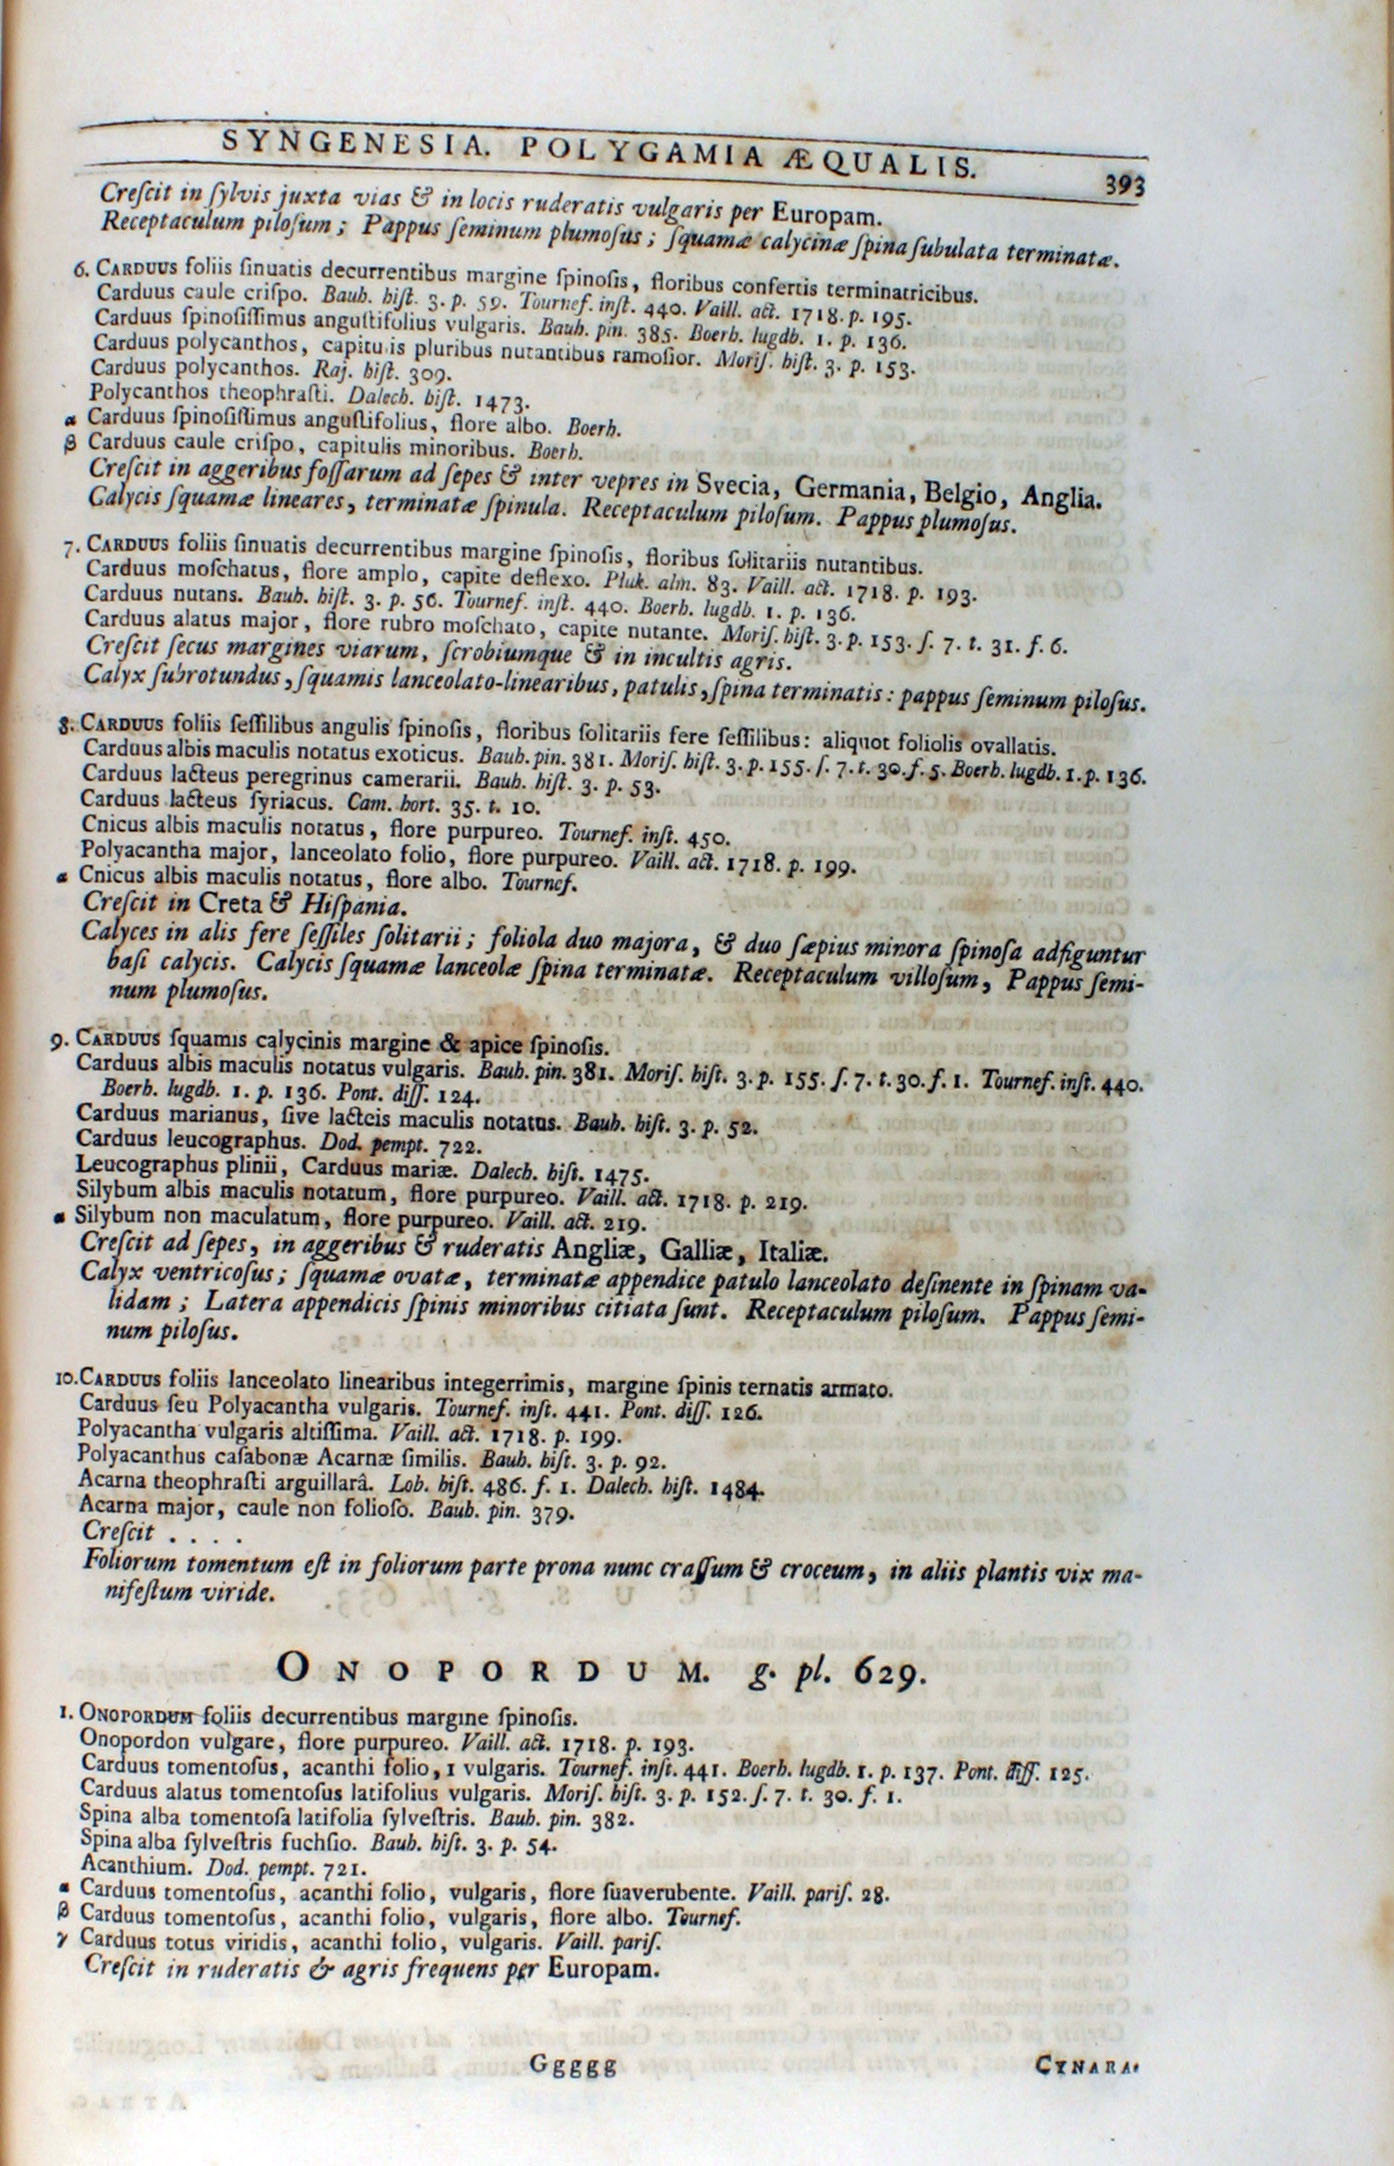 SYNGENESIA. POLYGAMIA ÆQUALIS. 393
Creſcit in ſylvis juxta vias & in locis ruderatis vulgaris per Europam.
Receptaculum piloſum; Pappus ſeminum plumoſus; ſquamæ calycinæ ſpina ſubulata terminatæ.
6. CARDUUS foliis ſinuatis decurrentibus margine ſpinoſis, floribus confertis terminatricibus.
Carduus caule criſpo. Bauh. hiſt. 3. p. 59. Tournef. inſt. 440. Vaill. act. 1718. p. 195.
Carduus ſpinoſiſſimus anguſtifolius vulgaris. Bauh. pin. 385. Boerh. lugdb. 1. p. 136.
Carduus polycanthos, capitu is pluribus nutantibus ramoſior. Moriſ. hiſt. 3. p. 153.
Carduus polycanthos. Raj. hiſt. 309.
Polycanthos theophraſti. Dalech. hiſt. 1473.
α Carduus ſpinoſiſſimus anguſtifolius, flore albo. Boerh.
β Carduus caule criſpo, capitulis minoribus. Boerh.
Creſcit in aggeribus foſſarum ad ſepes & inter vepres in Svecia, Germania, Belgio, Anglia.
Calycis ſquamæ lineares, terminatæ ſpinula. Receptaculum piloſum. Pappus plumoſus.
7. CARDUUS foliis ſinuatis decurrentibus margine ſpinoſis, floribus ſolitariis nutantibus.
Carduus moſchatus, flore amplo, capite deflexo. Pluk. alm. 83. Vaill. act. 1718. p. 193.
Carduus nutans. Bauh. hiſt. 3. p. 56. Tournef. inſt. 440. Boerh. lugdb. 1. p. 136.
Carduus alatus major, flore rubro moſchato, capite nutante. Moriſ. hiſt. 3. p. 153. ſ. 7. t. 31. f. 6.
Creſcit ſecus margines viarum, ſcrobiumque & in incultis agris.
Calyx ſubrotundus, ſquamis lanceolato-linearibus, patulis, ſpina terminatis: pappus ſeminum piloſus.
8. CARDUUS foliis ſeſſilibus angulis ſpinoſis, floribus ſolitariis fere ſeſſilibus: aliquot foliolis ovallatis.
Carduus albis maculis notatus exoticus. Bauh. pin. 381. Moriſ. hiſt. 3. p. 155. ſ. 7. t. 30. f. 5. Boerh. lugdb. 1. p. 136.
Carduus lacteus peregrinus camerarii. Bauh. hiſt. 3. p. 53.
Carduus lacteus ſyriacus. Cam. hort. 35. t. 10.
Cnicus albis maculis notatus, flore purpureo. Tournef. inſt. 450.
Polyacantha major, lanceolato folio, flore purpureo. Vaill. act. 1718. p. 199.
α Cnicus albis maculis notatus, flore albo. Tournef.
Creſcit in Creta & Hiſpania.
Calyces in alis fere ſeſſiles ſolitarii; foliola duo majora, & duo ſæpius minora ſpinoſa adfiguntur
baſi calycis. Calycis ſquamæ lanceolæ ſpina terminatæ. Receptaculum villoſum, Pappus ſemi-
num plumoſus.
9. CARDUUS ſquamis calycinis margine & apice ſpinoſis.
Carduus albis maculis notatus vulgaris. Bauh. pin. 381. Moriſ. hiſt. 3. p. 155. ſ. 7. t. 30. f. 1. Tournef. inſt. 440.
Boerh. lugdb. 1. p. 136. Pont. diſſ. 124.
Carduus marianus, ſive lacteis maculis notatus. Bauh. hiſt. 3. p. 52.
Carduus leucographus. Dod. pempt. 722.
Leucographus plinii, Carduus mariæ. Dalech. hiſt. 1475.
Silybum albis maculis notatum, flore purpureo. Vaill. act. 1718. p. 219.
α Silybum non maculatum, flore purpureo. Vaill. act. 219.
Creſcit ad ſepes, in aggeribus & ruderatis Angliæ, Galliæ, Italiæ.
Calyx ventricoſus; ſquamæ ovatæ, terminatæ appendice patulo lanceolato deſinente in ſpinam va-
lidam; Latera appendicis ſpinis minoribus citiata ſunt. Receptaculum piloſum. Pappus ſemi-
num piloſus.
10. CARDUUS foliis lanceolato linearibus integerrimis, margine ſpinis ternatis armato.
Carduus ſeu Polyacantha vulgaris. Tournef. inſt. 441. Pont. diſſ. 126.
Polyacantha vulgaris altiſſima. Vaill. act. 1718. p. 199.
Polyacanthus caſabonæ Acarnæ ſimilis. Bauh. hiſt. 3. p. 92.
Acarna theophraſti arguillarâ. Lob. hiſt. 486. f. 1. Dalech. hiſt. 1484.
Acarna major, caule non folioſo. Bauh. pin. 379.
Creſcit . . . .
Foliorum tomentum eſt in foliorum parte prona nunc craſſum & croceum, in aliis plantis vix ma-
nifeſtum viride.
ONOPORDUM. g. pl. 629.
1. ONOPORDUM foliis decurrentibus margine ſpinoſis.
Onopordon vulgare, flore purpureo. Vaill. act. 1718. p. 193.
Carduus tomentoſus, acanthi folio, 1 vulgaris. Tournef. inſt. 441. Boerh. lugdb. 1. p. 137. Pont. diſſ. 125.
Carduus alatus tomentoſus latifolius vulgaris. Moriſ. hiſt. 3. p. 152. ſ. 7. t. 30. f. 1.
Spina alba tomentoſa latifolia ſylveſtris. Bauh. pin. 382.
Spina alba ſylveſtris fuchſio. Bauh. hiſt. 3. p. 54.
Acanthium. Dod. pempt. 721.
α Carduus tomentoſus, acanthi folio, vulgaris, flore ſuaverubente. Vaill. pariſ. 28.
β Carduus tomentoſus, acanthi folio, vulgaris, flore albo. Tournef.
γ Carduus totus viridis, acanthi folio, vulgaris. Vaill. pariſ.
Creſcit in ruderatis & agris frequens per Europam.
Ggggg CYNARA.